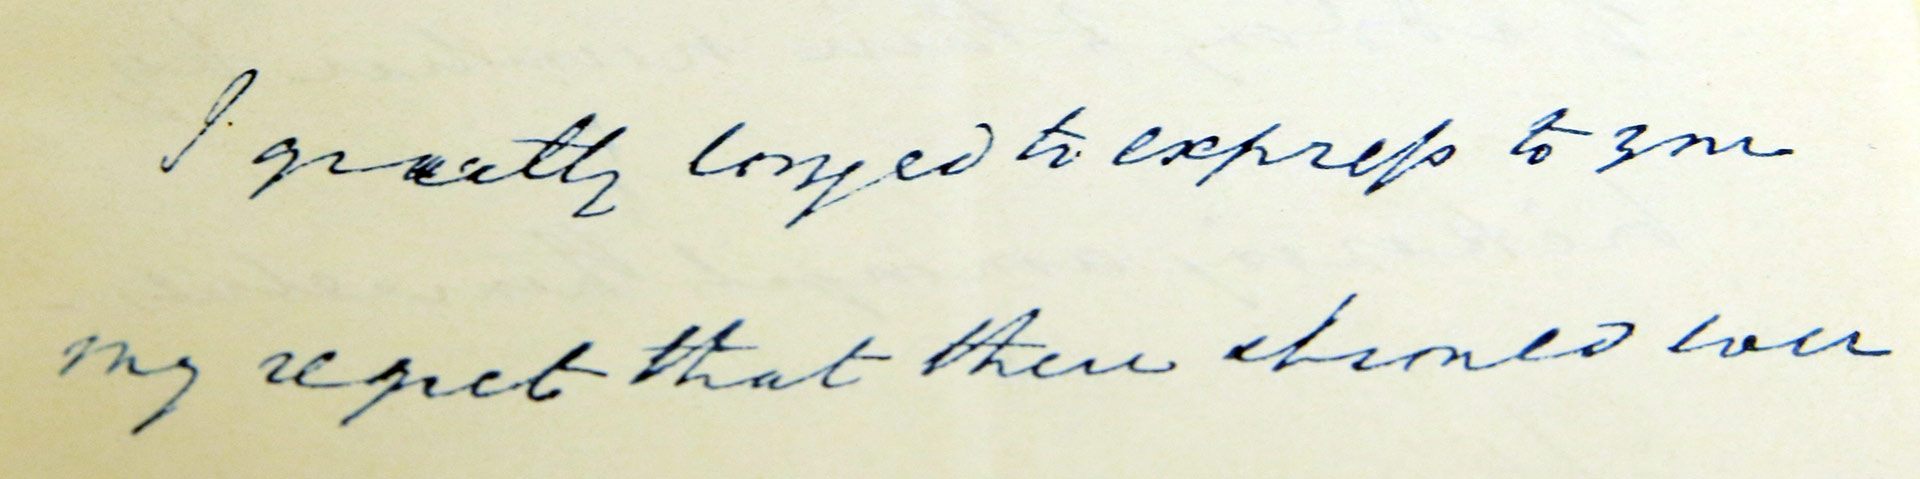 I greatly longed to express to you
my regret that there should ever